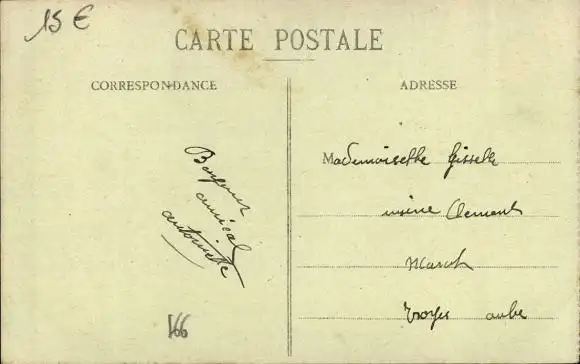 15 €
CARTE POSTALE
CORRESPONDANCE
ADRESSE
Bonjour
amical
antoinette
166
Mademoiselle Gisselle
usine Clement
Marot
Troyes aube